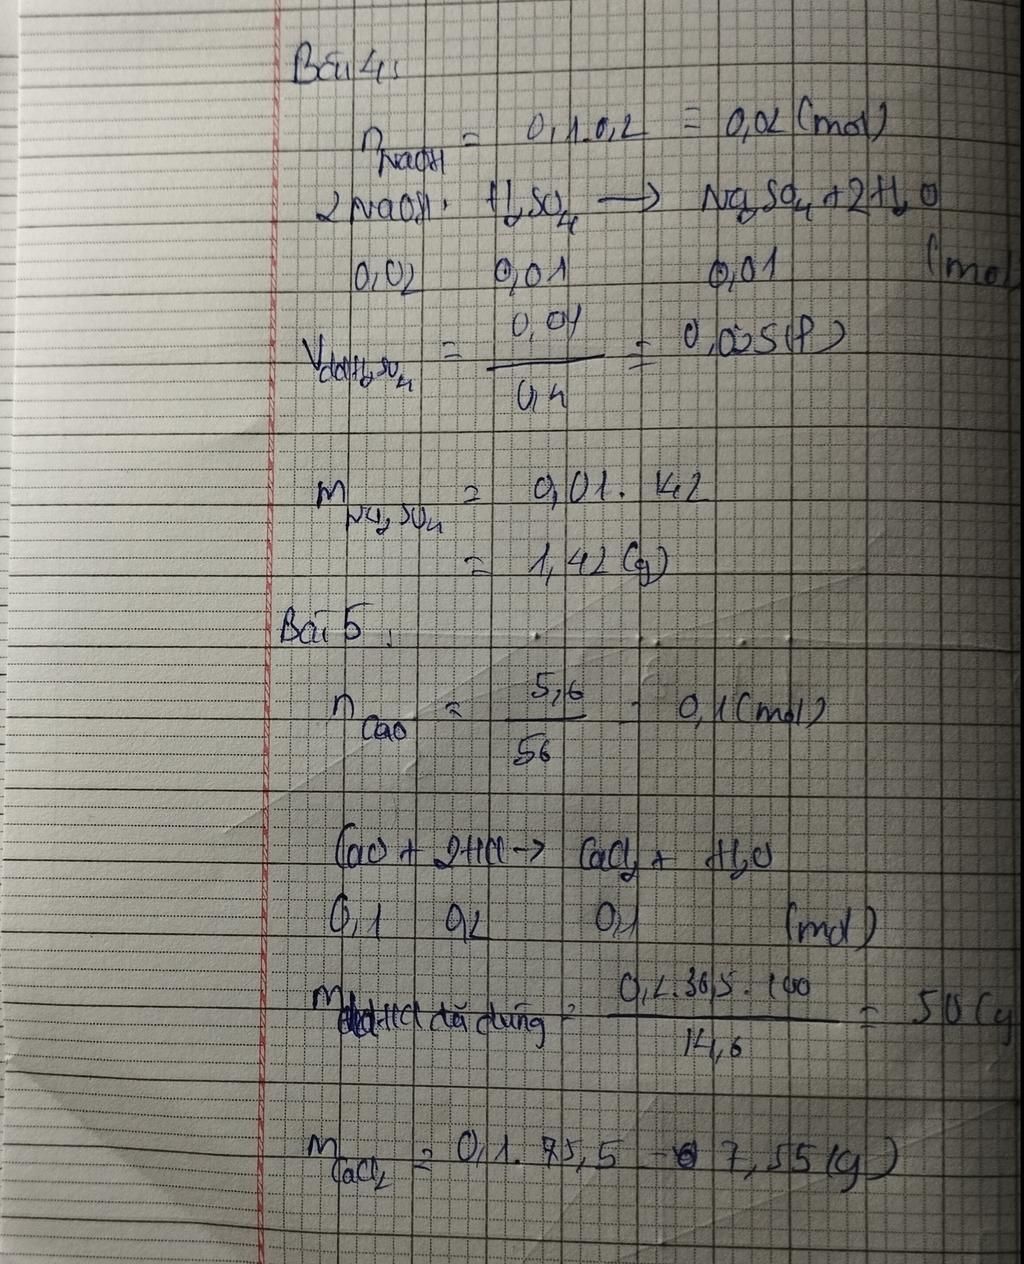 Bài 4:
n NaOH = 0,1.0,2 = 0,02 (mol)
2NaOH + H₂SO₄ → Na₂SO₄ + 2H₂O
0,02 0,01 0,01 (mol
V ddH₂SO₄ = 0,01 / 0,4 = 0,025 (l)
m Na₂SO₄ = 0,01. 142
= 1,42 (g)
Bài 5:
n CaO = 5,6 / 56 = 0,1 (mol)
CaO + 2HCl → CaCl₂ + H₂O
0,1 0,2 0,1 (mol)
m ddHCl đã dùng = 0,2.36,5.100 / 14,6 = 50 (g
m CaCl₂ = 0,1. 75,5 = 7,55 (g)